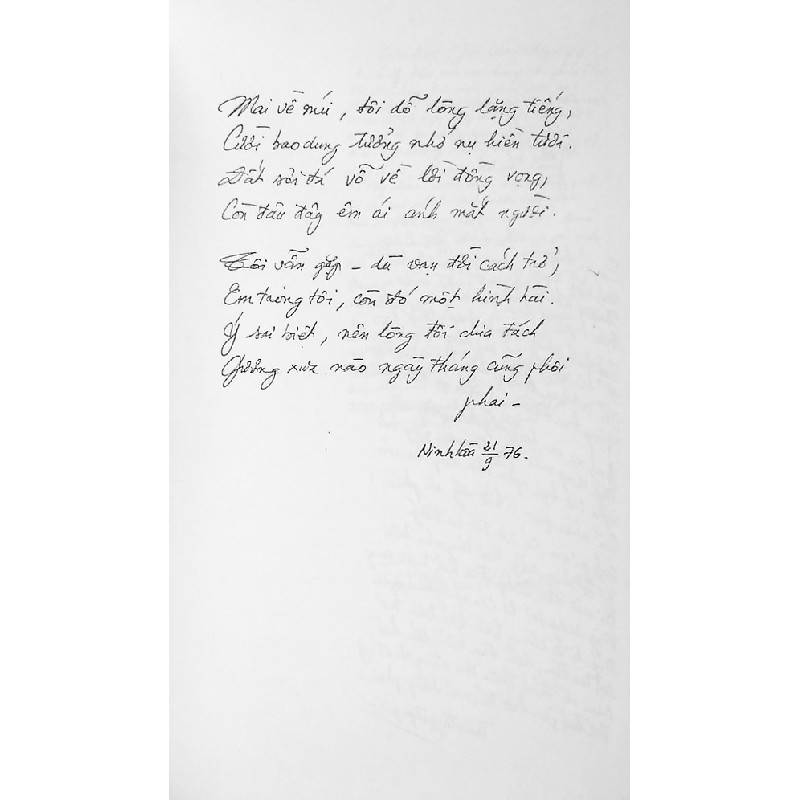 Mai về núi, tôi dỗ lòng lặng tiếng,
Cười bao dung tưởng nhớ nụ hiền tươi.
Đất sỏi đá vỗ về lời đồng vọng,
Còn đâu đây êm ái ánh mắt người.
Tôi vẫn gặp – dù vạn đời cách trở,
Em trong tôi, còn đó một hình hài.
Ý sai biệt, nên lòng tôi chia tách
Gương xưa nào ngày tháng cũng phôi
phai –
Ninh Hòa 21/9 76.